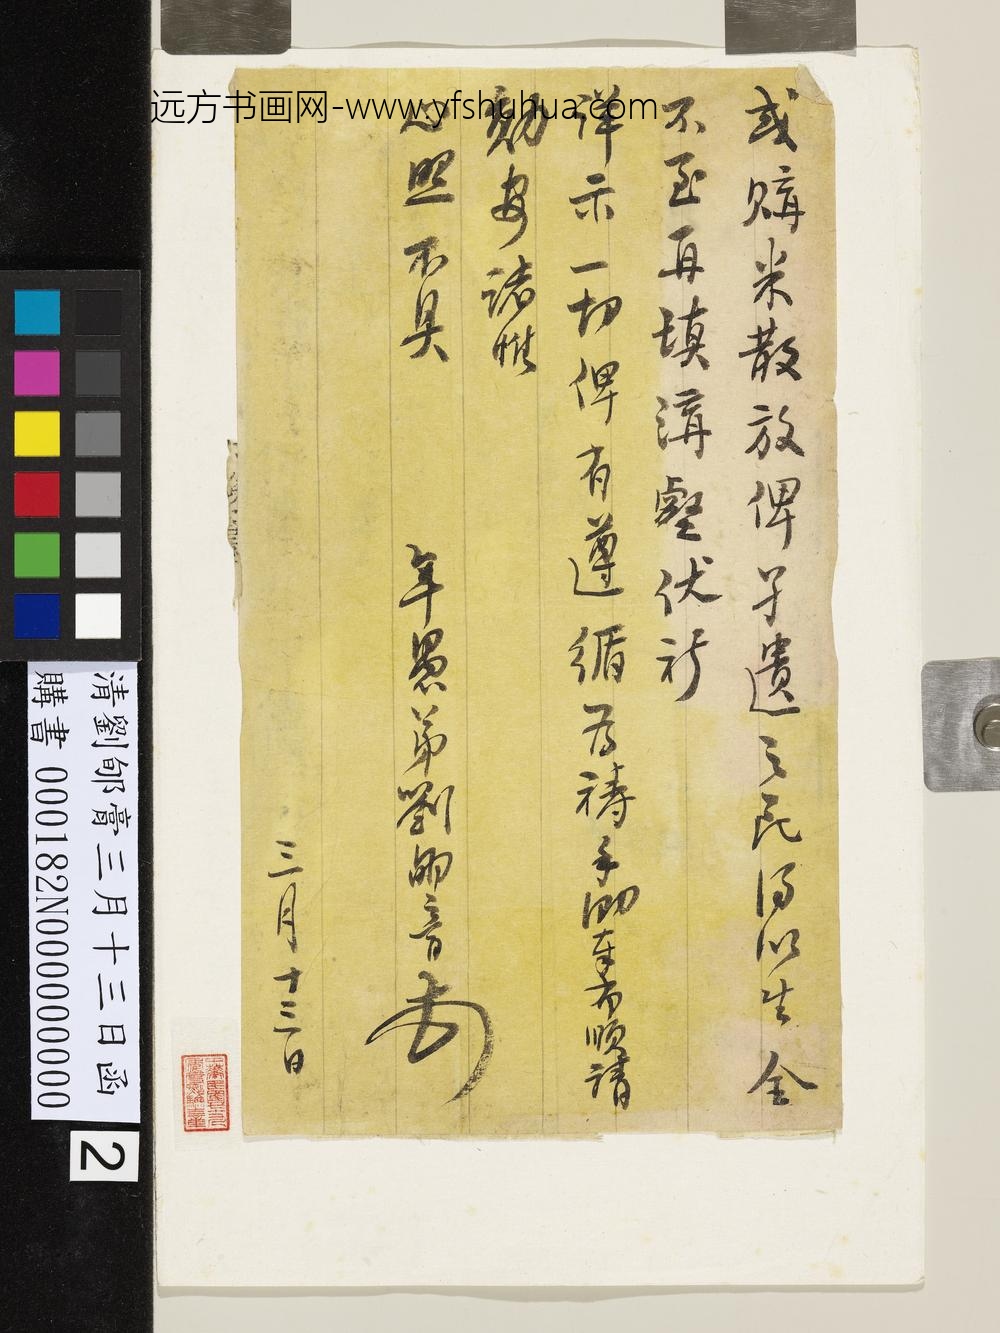 远方书画网-www.yfshuhua.com
或購米散放俾孑遺之民得以生全
不至再填溝壑伏祈
詳示一切俾有遵循為禱手泐奉布順請
勛安諸惟
心照不具
年愚弟劉郇膏
三月十三日
清劉郇膏三月十三日函
購書 000182N000000000
2